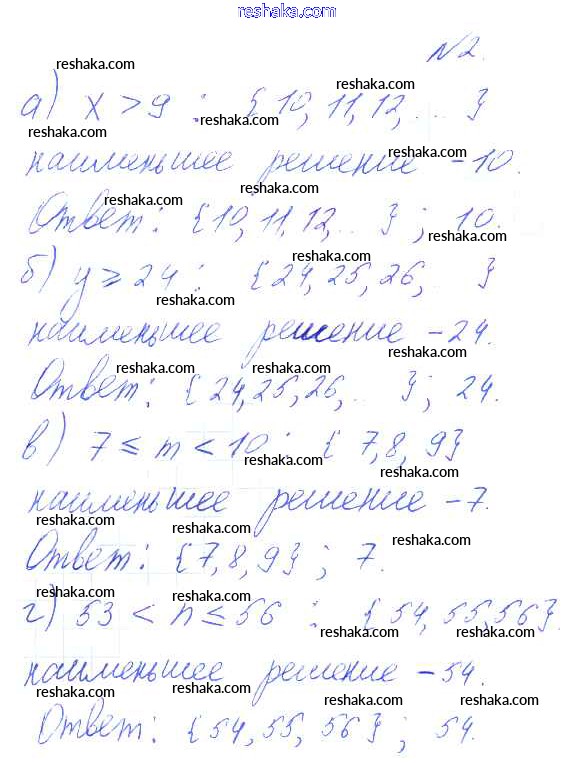 reshaka.com
№2.
reshaka.com
reshaka.com
а) x > 9 : {10, 11, 12, .. }
reshaka.com reshaka.com
reshaka.com
наименьшее решение – 10.
reshaka.com
reshaka.com
Ответ: {10, 11, 12, .. } ; 10.
reshaka.com
reshaka.com
б) y ⩾ 24 : {24, 25, 26, .. }
reshaka.com
reshaka.com
наименьшее решение – 24.
reshaka.com
reshaka.com reshaka.com
Ответ: {24, 25, 26, .. } ; 24.
reshaka.com
в) 7 ⩽ m < 10 : {7, 8, 9}
reshaka.com
reshaka.com
наименьшее решение – 7.
reshaka.com
reshaka.com
Ответ: {7, 8, 9} ; 7.
reshaka.com
г) 53 < n ⩽ 56 : {54, 55, 56}.
reshaka.com reshaka.com
наименьшее решение – 54.
reshaka.com reshaka.com
reshaka.com
Ответ: {54, 55, 56} ; 54.
reshaka.com reshaka.com